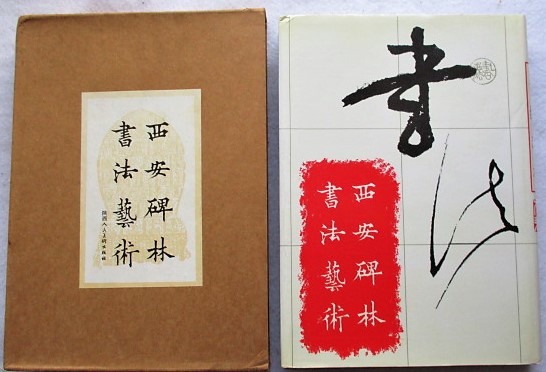 西安碑林
書法藝術
陕西人民美术出版社
書法
西安碑林
書法藝術